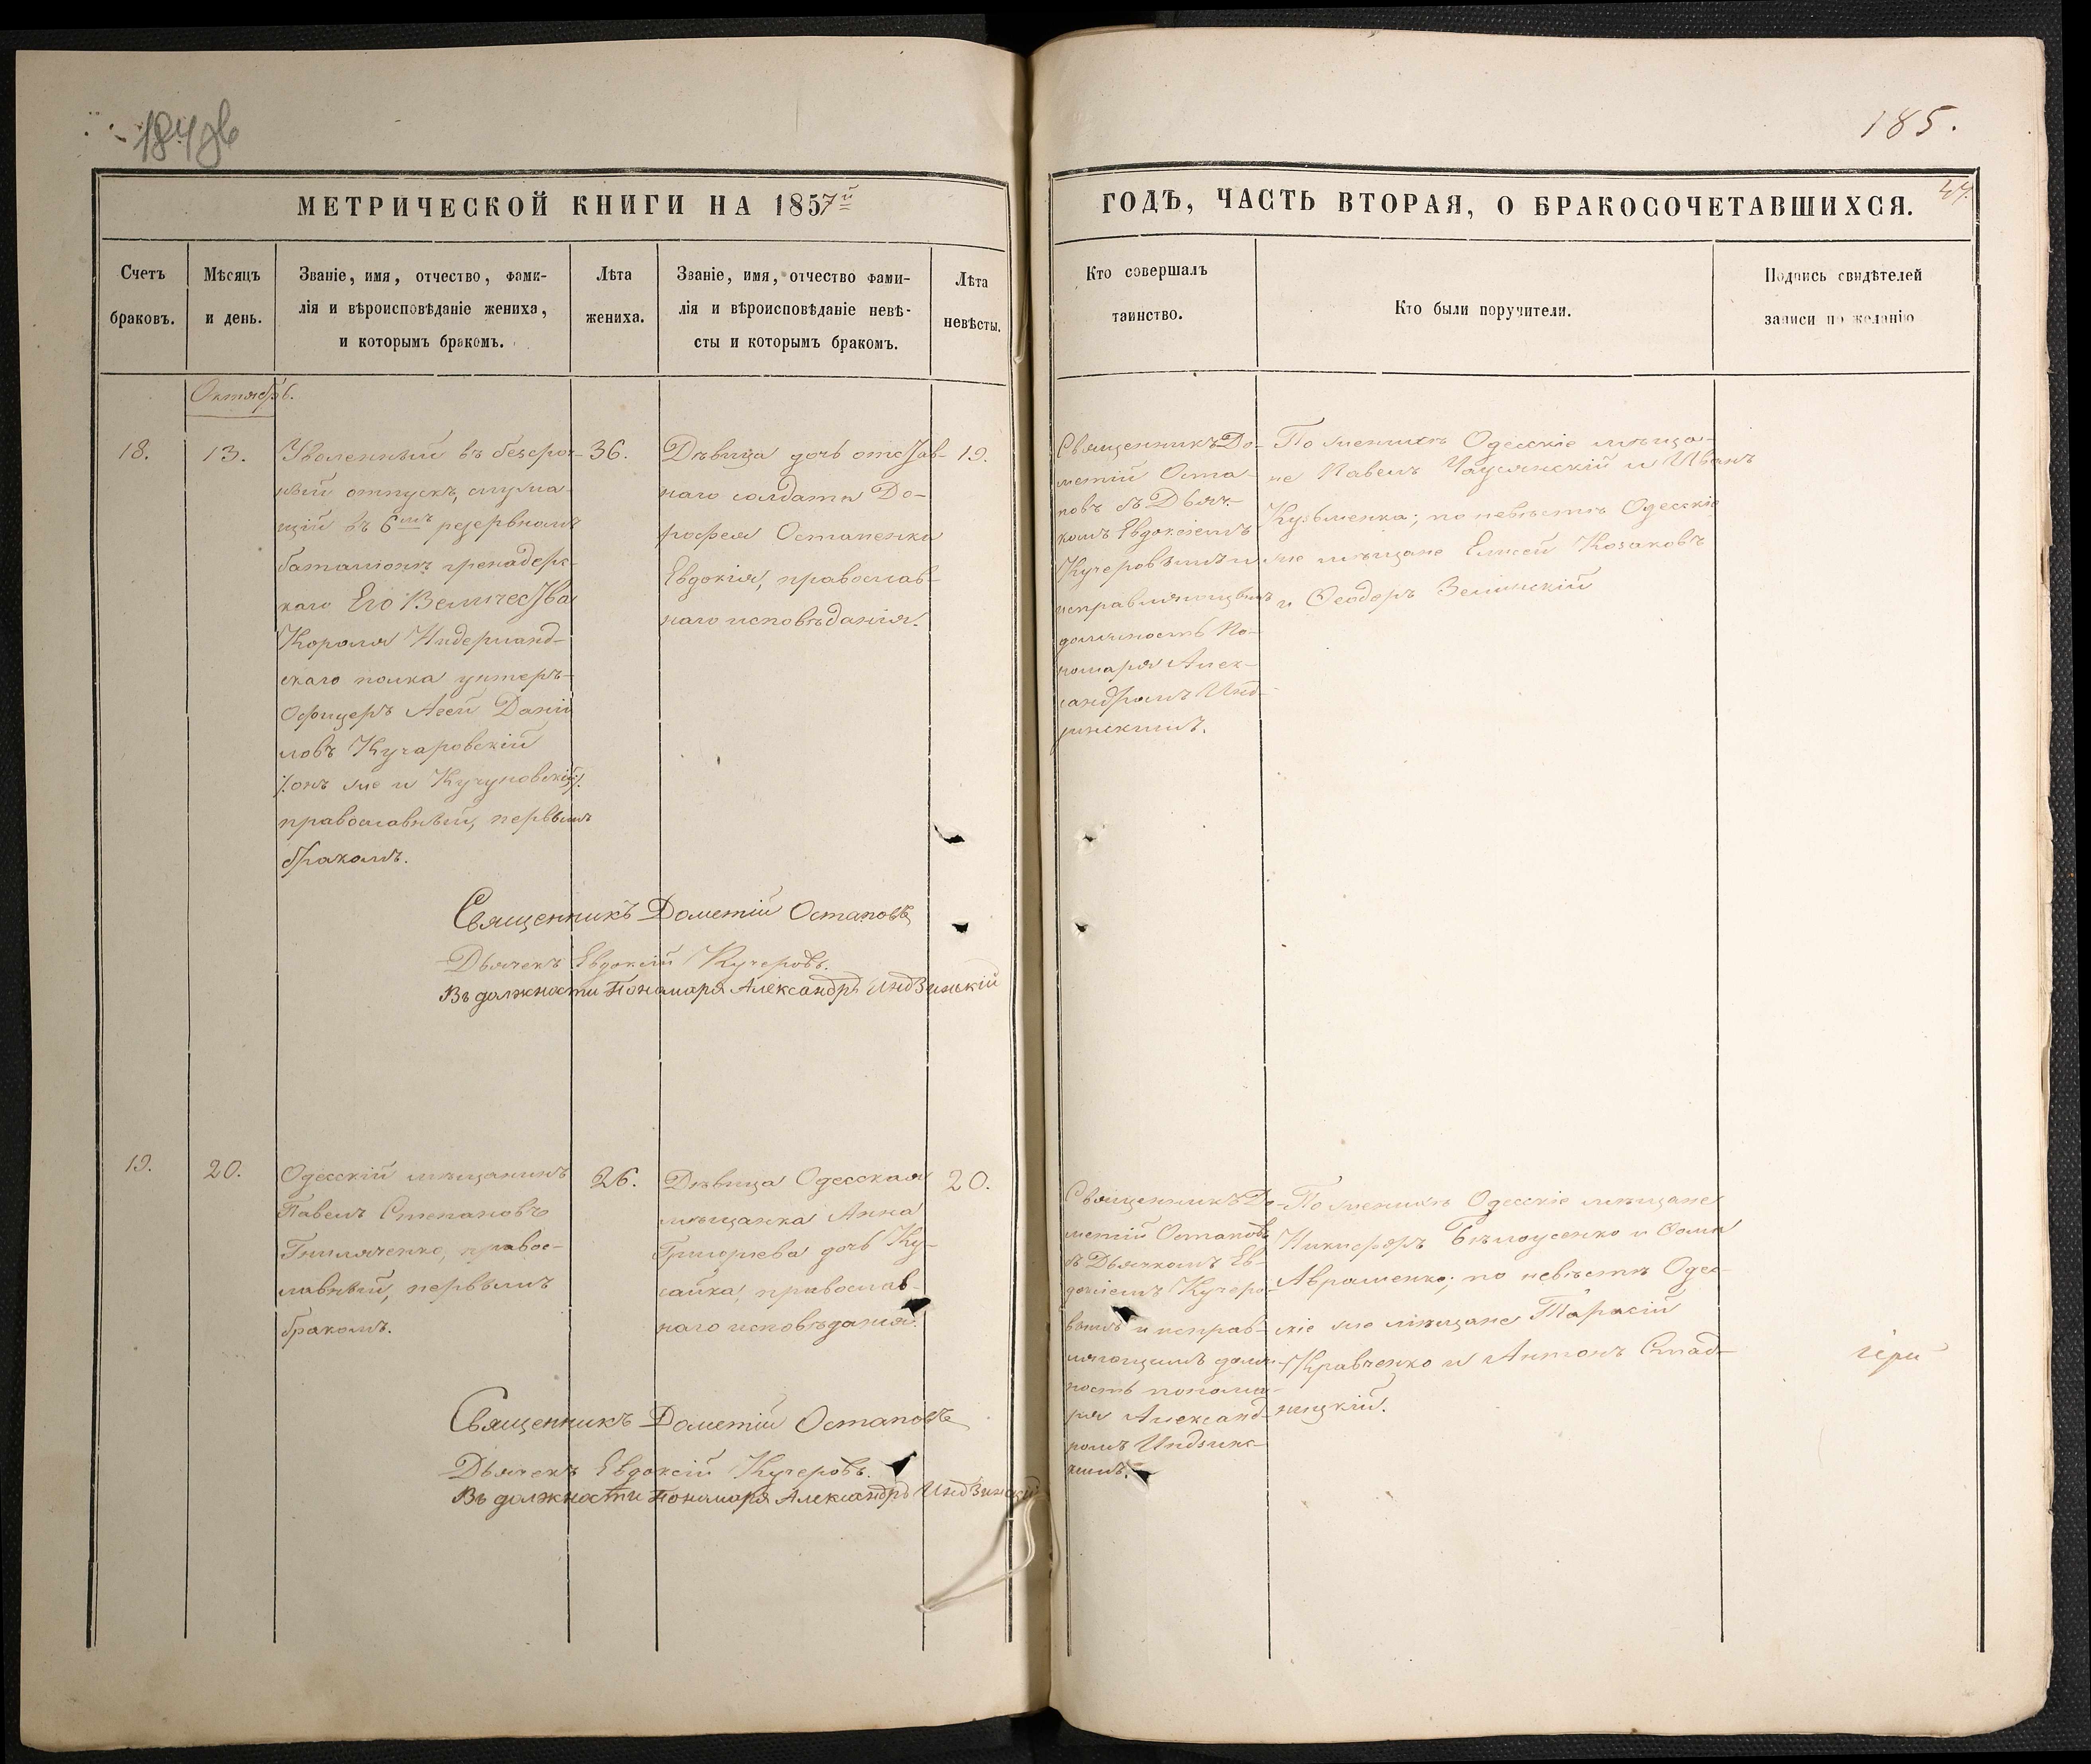 185.
47.
МЕТРИЧЕСКОЙ КНИГИ НА 1857й
ГОДЪ, ЧАСТЬ ВТОРАЯ, О БРАКОСОЧЕТАВШИХСЯ.
Счетъ
браковъ.
Мѣсяцъ
и день.
Званіе, имя, отчество, фами-
лія и вѣроисповѣданіе жениха,
и которымъ бракомъ.
Лѣта
жениха.
Званіе, имя, отчество фами-
лія и вѣроисповѣданіе невѣ-
сты и которымъ бракомъ.
Лѣта
невѣсты.
Кто совершалъ
таинство.
Кто были поручители.
Подпись свидѣтелей
записи по желанію
Октябрь.
18.
13.
Уволенный въ безсроч-
ный отпускъ, служа-
щій въ 6мъ резервномъ
баталіонѣ гренадерс-
каго Его Величества
Короля Нидерланд-
скаго полка унтеръ-
Офицеръ Агей Даніи
ловъ Кучаровскій
/:онъ же и Кучуновскій:/
православный, первымъ
бракомъ.
36.
Дѣвица дочь отстав-
наго солдата До-
рофея Остапенка
Евдокія, православ-
наго исповѣданія.
19.
Священникъ До-
метій Оста-
повъ съ Дьяч-
комъ Евдоксіемъ
Кучеровымъ и
исправляющимъ
должность По-
номаря Алек-
сандромъ Инд-
зинскимъ.
По женихѣ Одесскіе мѣща-
не Павелъ Чаусянскій и Иванъ
Кузьменко; по невѣстѣ Одесскіе
же мѣщане Елисей Козаковъ
и Ѳеодоръ Зелинскій
Священникъ Дометій Остаповъ
Дьячекъ Евдоксій Кучеровъ.
Въ должности Пономаря Александръ Индзинскій
19.
20.
Одесскій мѣщанинъ
Павелъ Степановъ
Гниляченко, правос-
лавный, первымъ
бракомъ.
26.
Дѣвица Одесская
мѣщанка Анна
Григорьева дочь Ку-
сайка, православ-
наго исповѣданія.
20.
Священникъ До-
метій Остаповъ
съ Дьячкомъ Ев-
доксіемъ Кучеро-
вымъ и исправ-
ляющимъ долж-
ность понома-
ря Александ-
ромъ Индзинс-
кимъ.
По женихѣ Одесскіе мѣщане
Никифоръ Бѣлоусенко и Ѳома
Авраменко; по невѣстѣ Одес-
скіе же мѣщане Тарасій
Кравченко и Антонъ Стад-
ницкій.
Священникъ Дометій Остаповъ
Дьячекъ Евдоксій Кучеровъ.
Въ должности Пономаря Александръ Индзинскій